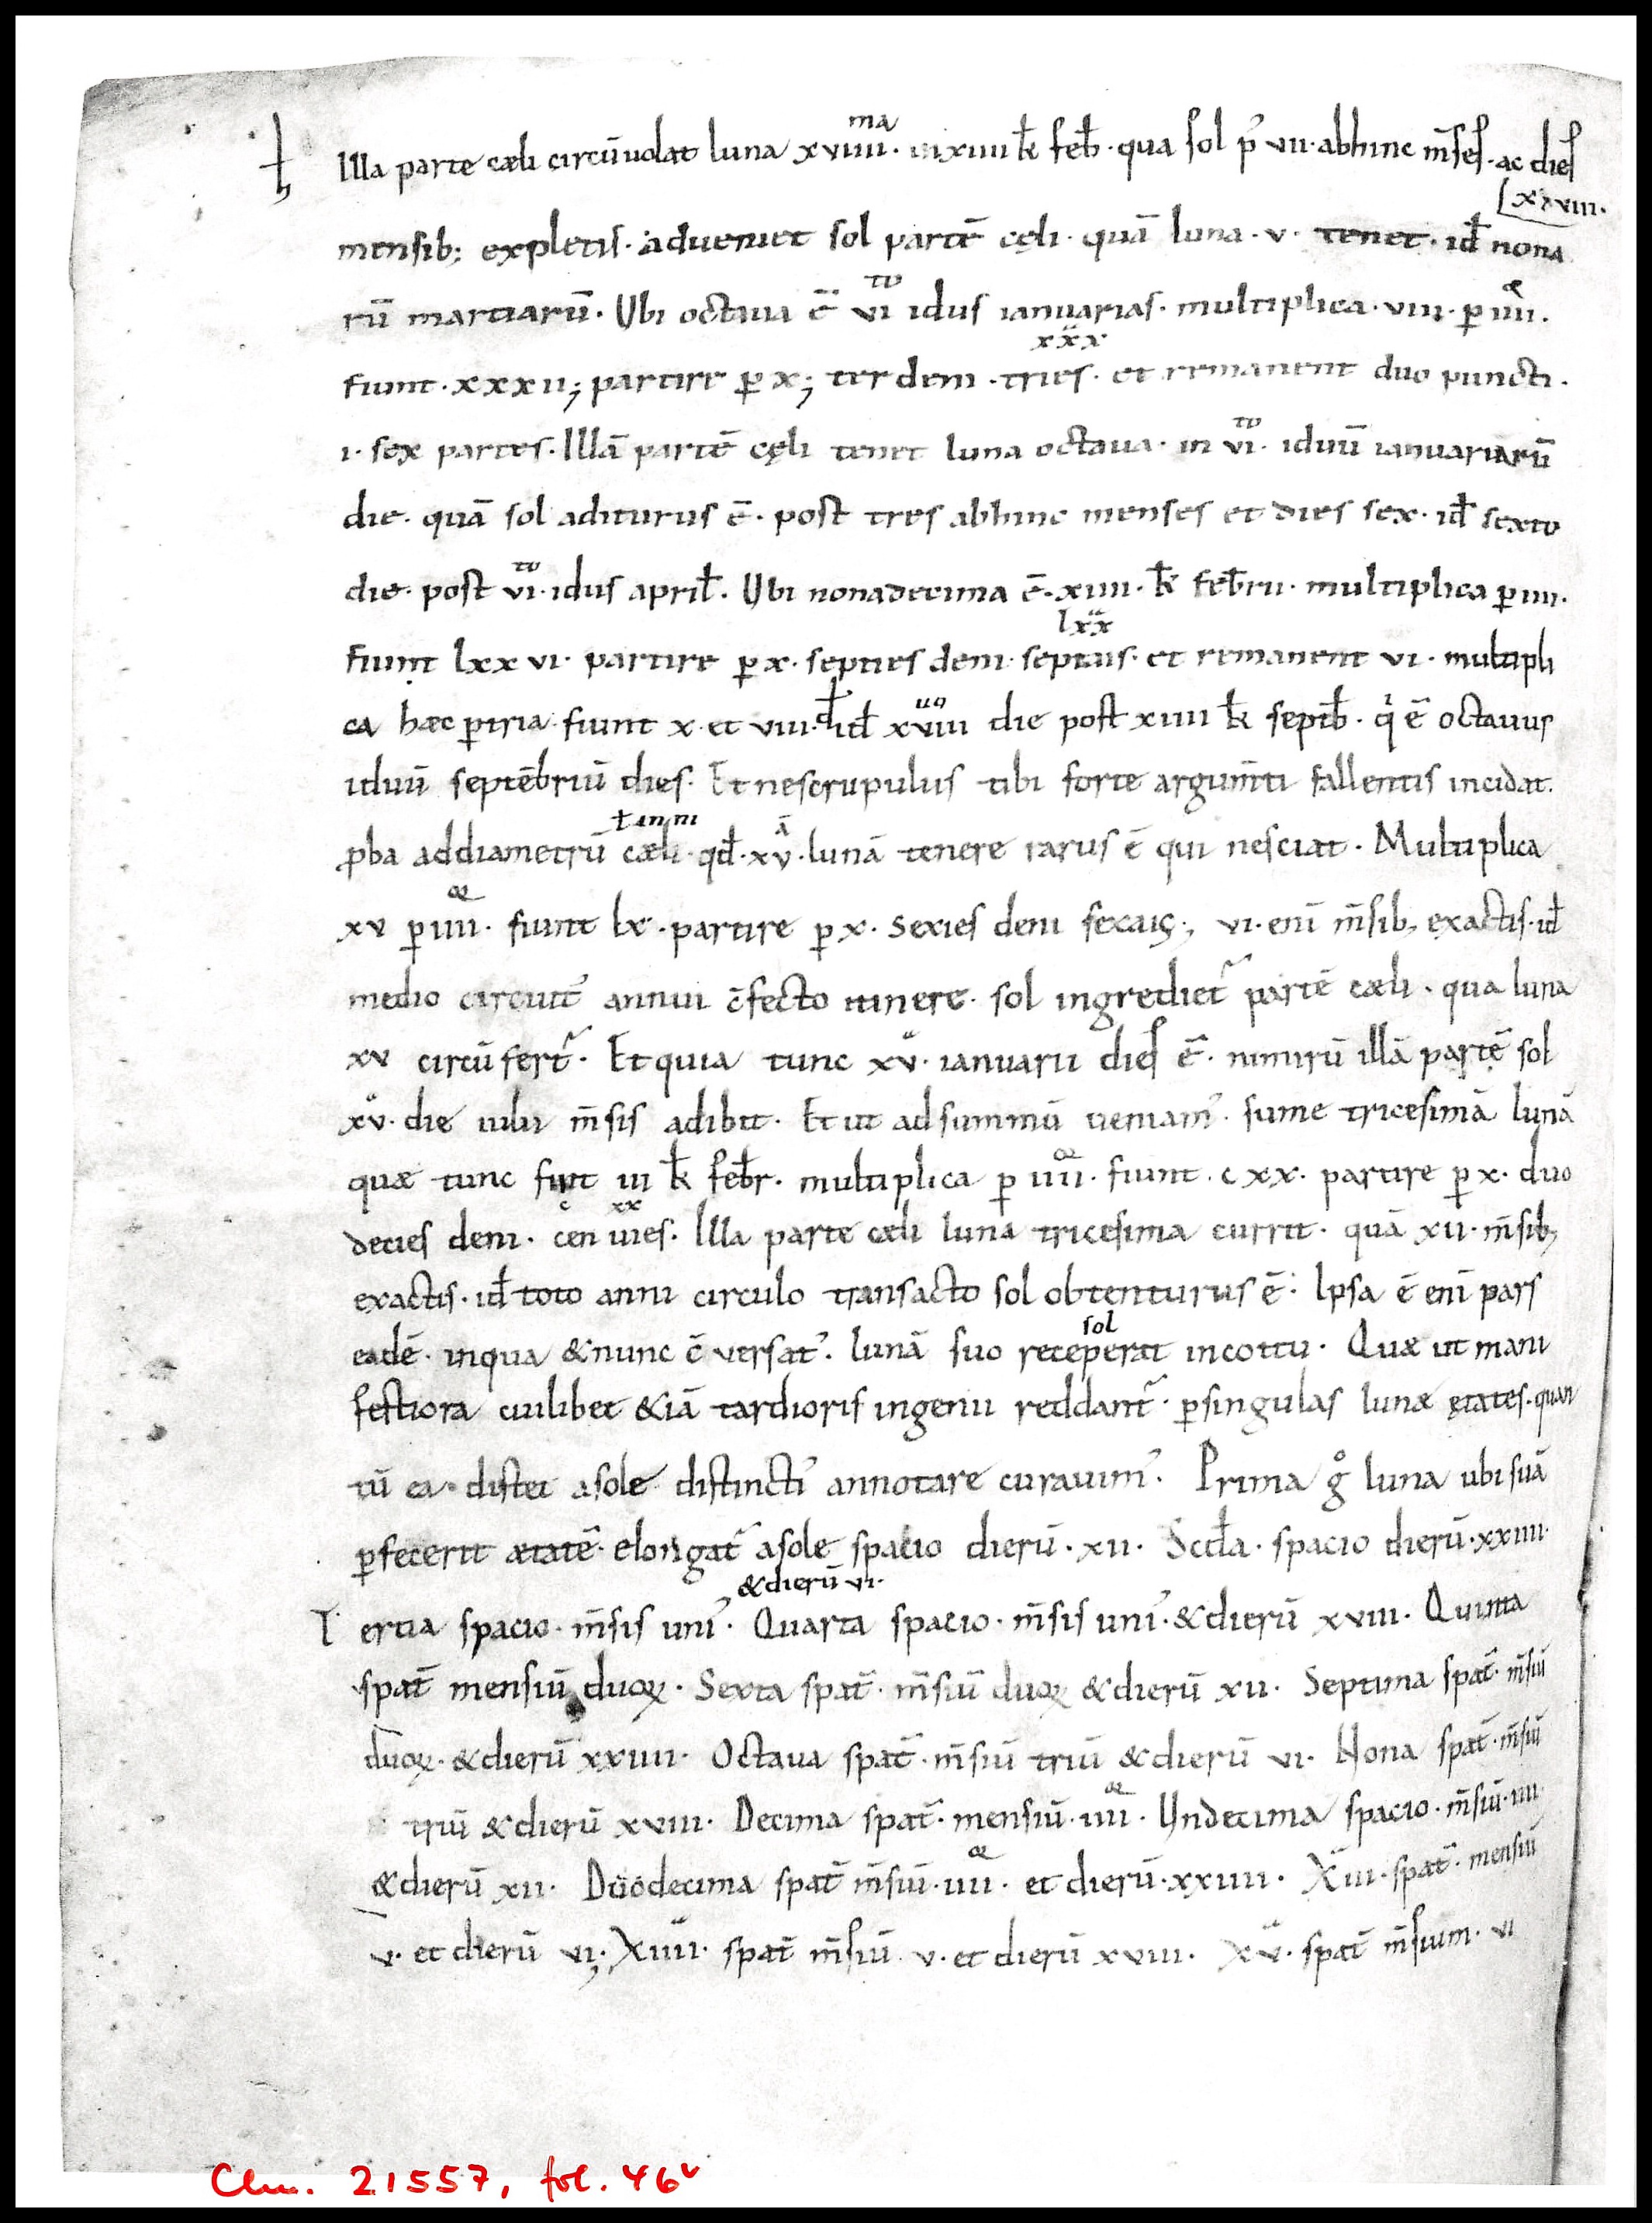 ma
Illa parte cæli circūuolat luna xviiii · in xiiii k̄ feb̄ · qua sol p̓ vii · abhinc m̄ses · ac dies
xxviii ·
mensib; expletis · adueniet sol partē cęli · quā luna · v · tenet · id̄ nona
rū martiarū · Ubi octaua ē vi idus ianuarias · multiplica · viii · ꝑ iiii ·
fiunt · xxxii; partire ꝑ x; ter deni · tries · et remanent duo puncti ·
i · sex partes · Illā partē cęli tenet luna octaua · in vi · iduū ianuariarū
die · quā sol aditurus ē · post tres abhinc menses et dies sex · id̄ sexto
die · post vi · idus april̄ · Ubi nonadecima ē · xiiii · k̄ feb̄ru · multiplica ꝑ iiii ·
fiunt lxxvi · partire ꝑ x · septies deni · et remanent vi · multipli
ca hæc ꝑ tria · fiunt x · et viii · id̄ xviii die post xiiii k̄ septēb̄ · q̇ ē octauus
iduū septēbriū dies · Et ne scrupulus tibi forte argum̄ti fallentis incidat ·
ꝓba ad diametrū cæli · qd̄ · xv · lunā tenere rarus ē qui nesciat · Multiplica
xv ꝑ iiii · fiunt lx · partire ꝑ x · sexies deni · vi · enī m̄sib; exactis · id̄
medio circuit᷒ annui c̄fecto itinere · sol ingrediet᷑ partē cæli · qua luna
xv circūfert᷑ · Et quia tunc xv · ianuarii dies ē · nimirū illā partē sol
xv · die iulii m̄sis adibit · Et ut ad summū ueniam᷒ · sume tricesimā lunā
quæ tunc fit iii k̄ feb̄r · multiplica ꝑ iiii · fiunt · cxx · partire ꝑ x · duo
decies deni · Illa parte cæli luna tricesima currit · quā xii · m̄sib;
exactis · id̄ toto anni circulo transacto sol obtenturus ē · Ipsa ē enī pars
sol
eadē · in qua & nunc c̄uersat᷒ · lunā suo receperat in coitu · Quæ ut mani
festiora cuilibet &iā tardioris ingenii reddant᷑ · ꝑ singulas lunæ ętates · quan
tū ea distet a sole distincti᷒ annotare curauim᷒ · Prima g̊ luna ubi suā
ꝑfecerit ætatē · elongat᷑ a sole spacio dierū · xii · Scd̄a · spacio dierū · xxiiii ·
& dierū vi ·
Tertia spacio · m̄sis uni᷒ · Quarta spacio · m̄sis uni᷒ · & dierū xviii · Quinta
spat̄ mensiū duoꝝ · Sexta spat̄ · m̄siū duoꝝ & dierū xii · Septima spat̄ · m̄siū
duoꝝ · & dierū xxiiii · Octaua spat̄ · m̄siū triū & dierū vi · Nona spat̄ · m̄siū
triū & dierū xviii · Decima spat̄ · mensiū · iiii · Undecima spacio · m̄siū · iiii
& dierū xii · Duodecima spat̄ m̄siū · iiii · et dierū · xxiiii · Xiii · spat̄ · mensiū
v · et dierū vi; Xiiii · spat̄ m̄siū v · et dierū xviii · Xv · spat̄ m̄sium · vi
Clm. 21557, fol. 46v